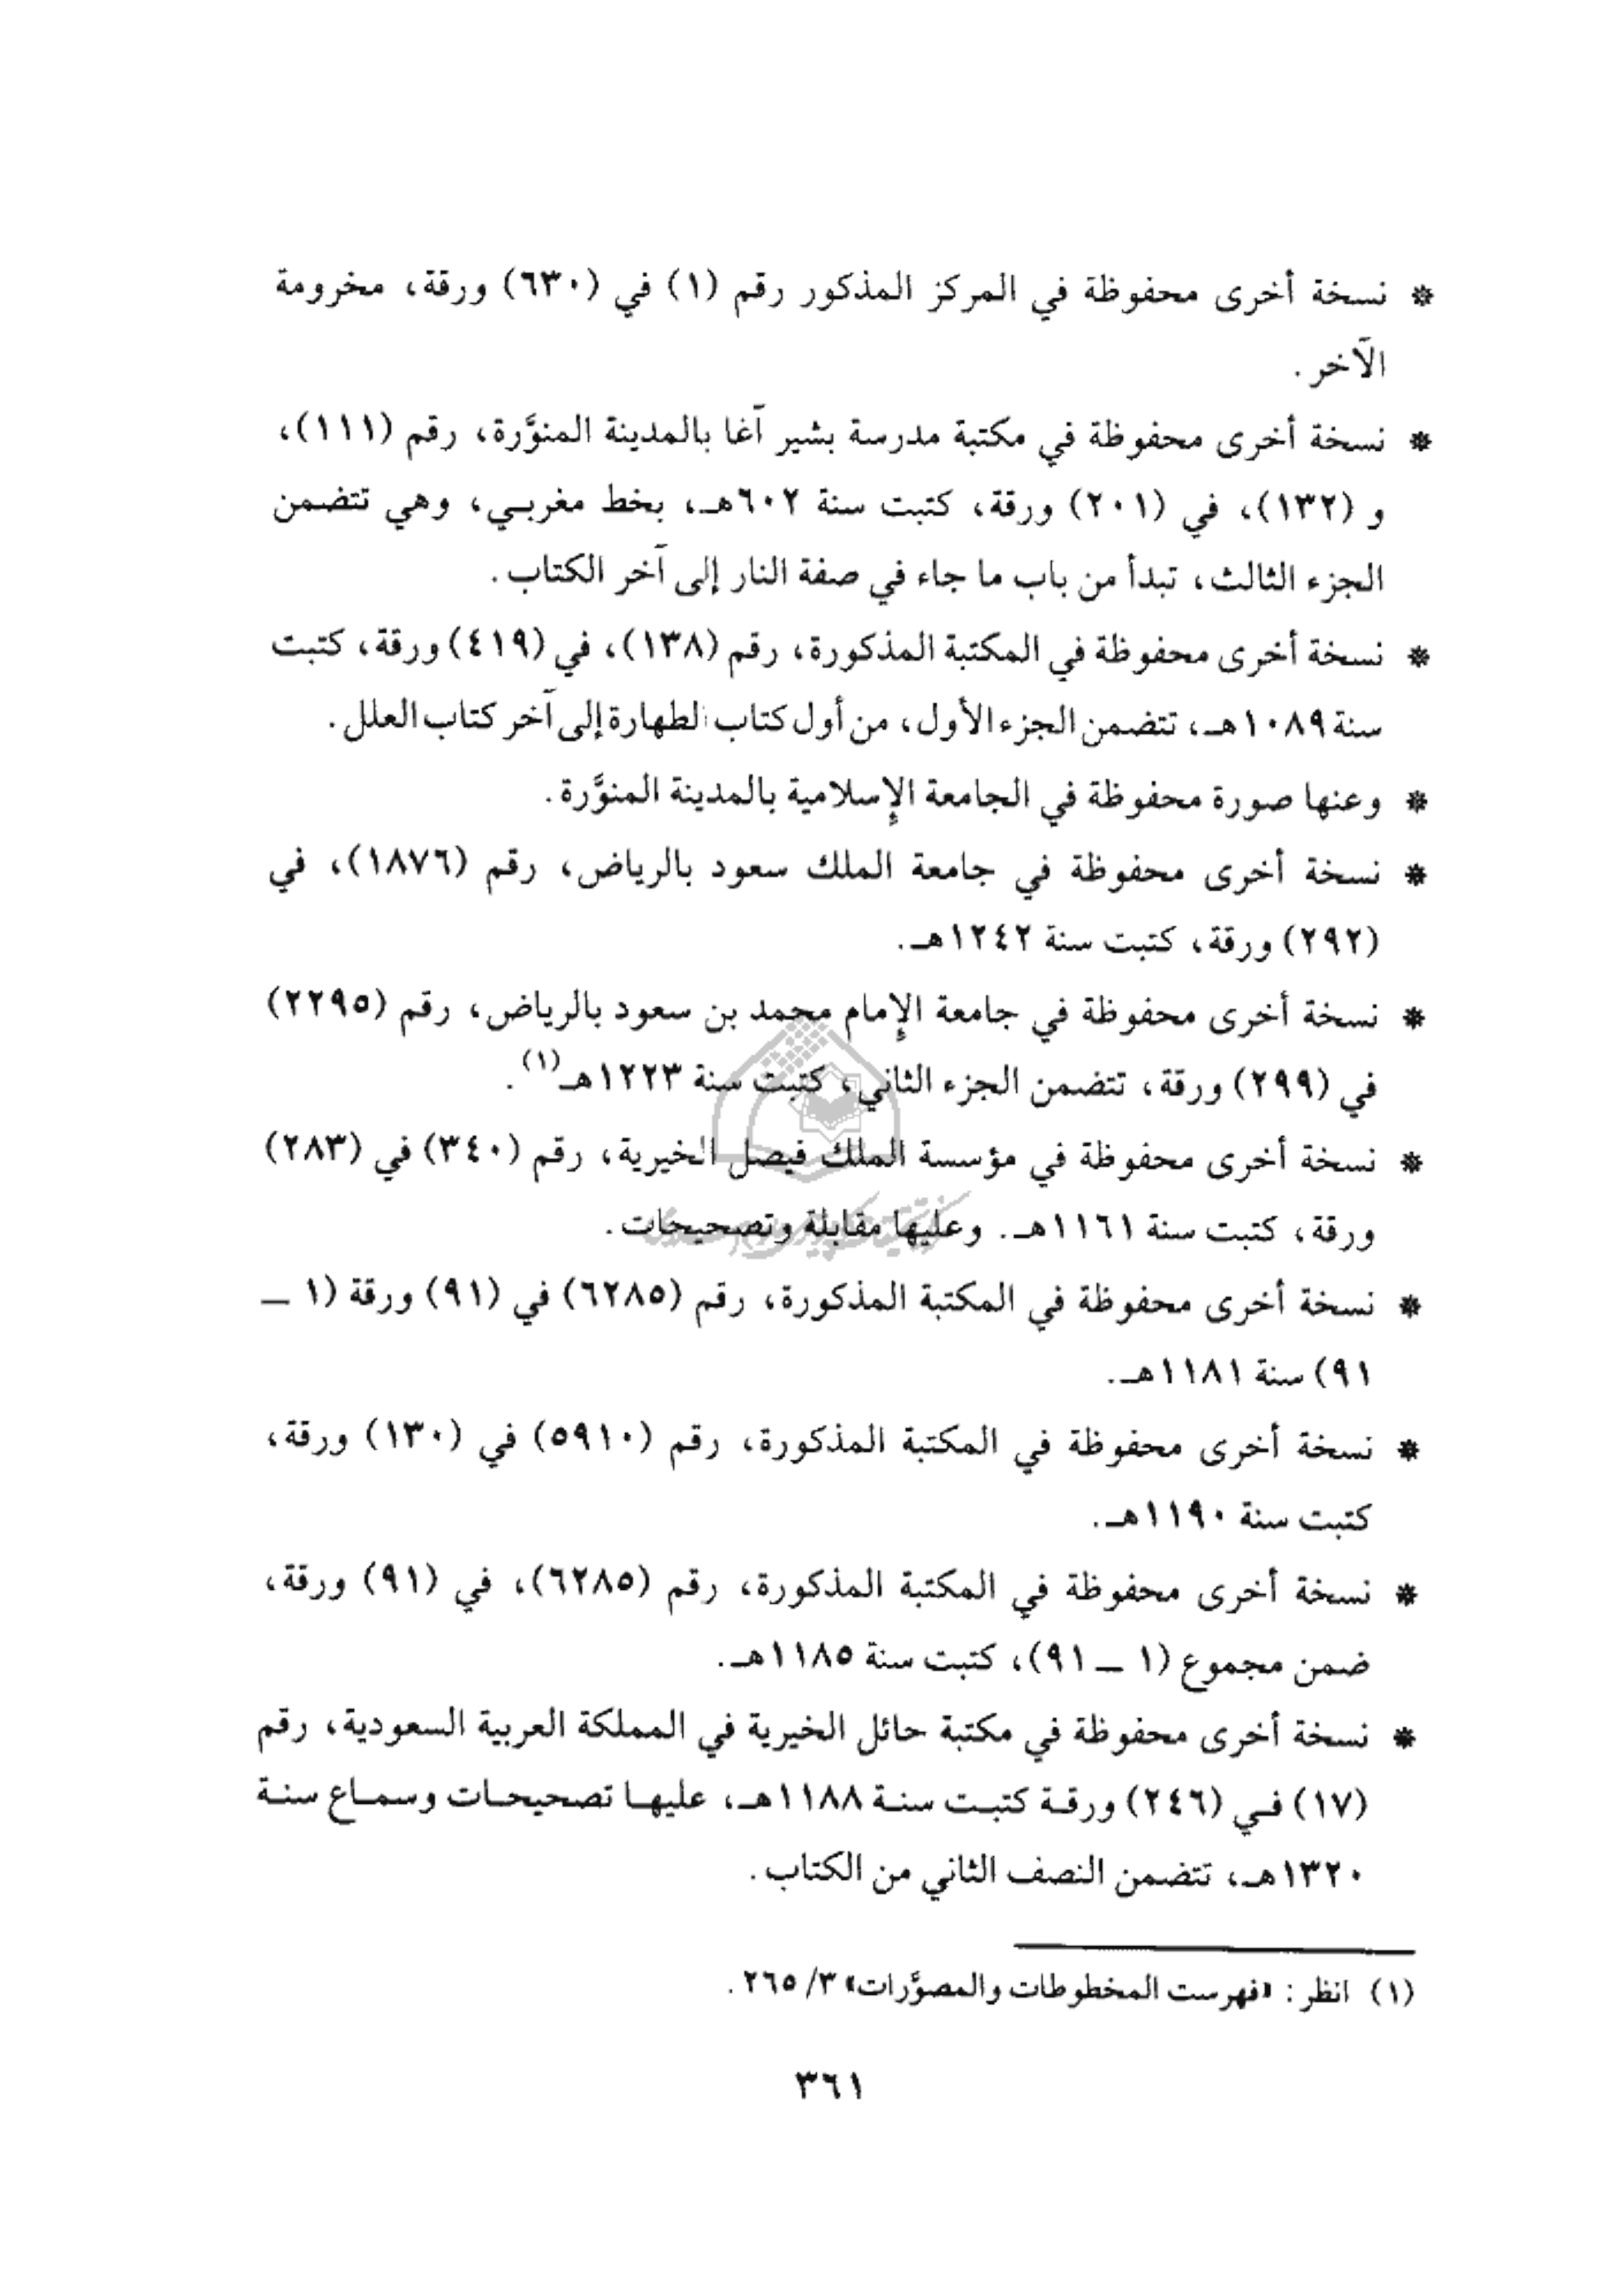 * نسخة أخرى محفوظة في المركز المذكور رقم (١) في (٦٣٠) ورقة، مخرومة
الآخر.
* نسخة أخرى محفوظة في مكتبة مدرسة بشير آغا بالمدينة المنوَّرة، رقم (١١١)،
و (١٣٢)، في (٢٠١) ورقة، كتبت سنة ٦٠٢هـ، بخط مغربي، وهي تتضمن
الجزء الثالث، تبدأ من باب ما جاء في صفة النار إلى آخر الكتاب.
* نسخة أخرى محفوظة في المكتبة المذكورة، رقم (١٣٨)، في (٤١٩) ورقة، كتبت
سنة ١٠٨٩هـ، تتضمن الجزء الأول، من أول كتاب الطهارة إلى آخر كتاب العلل.
* وعنها صورة محفوظة في الجامعة الإسلامية بالمدينة المنوَّرة.
* نسخة أخرى محفوظة في جامعة الملك سعود بالرياض، رقم (١٨٧٦)، في
(٢٩٢) ورقة، كتبت سنة ١٢٤٢هـ.
* نسخة أخرى محفوظة في جامعة الإمام محمد بن سعود بالرياض، رقم (٢٢٩٥)
في (٢٩٩) ورقة، تتضمن الجزء الثاني، كتبت سنة ١٢٢٣هـ(١).
* نسخة أخرى محفوظة في مؤسسة الملك فيصل الخيرية، رقم (٣٤٠) في (٢٨٣)
ورقة، كتبت سنة ١١٦١هـ. وعليها مقابلة وتصحيحات.
* نسخة أخرى محفوظة في المكتبة المذكورة، رقم (٦٢٨٥) في (٩١) ورقة (١ ــ
٩١) سنة ١١٨١هـ.
* نسخة أخرى محفوظة في المكتبة المذكورة، رقم (٥٩١٠) في (١٣٠) ورقة،
كتبت سنة ١١٩٠هـ.
* نسخة أخرى محفوظة في المكتبة المذكورة، رقم (٦٢٨٥)، في (٩١) ورقة،
ضمن مجموع (١ ــ ٩١)، كتبت سنة ١١٨٥هـ.
* نسخة أخرى محفوظة في مكتبة حائل الخيرية في المملكة العربية السعودية، رقم
(١٧) في (٢٤٦) ورقة كتبت سنة ١١٨٨هـ، عليها تصحيحات وسماع سنة
١٣٢٠هـ، تتضمن النصف الثاني من الكتاب.
(١) انظر: «فهرست المخطوطات والمصوَّرات» ٣/ ٢٦٥.
٣٦١